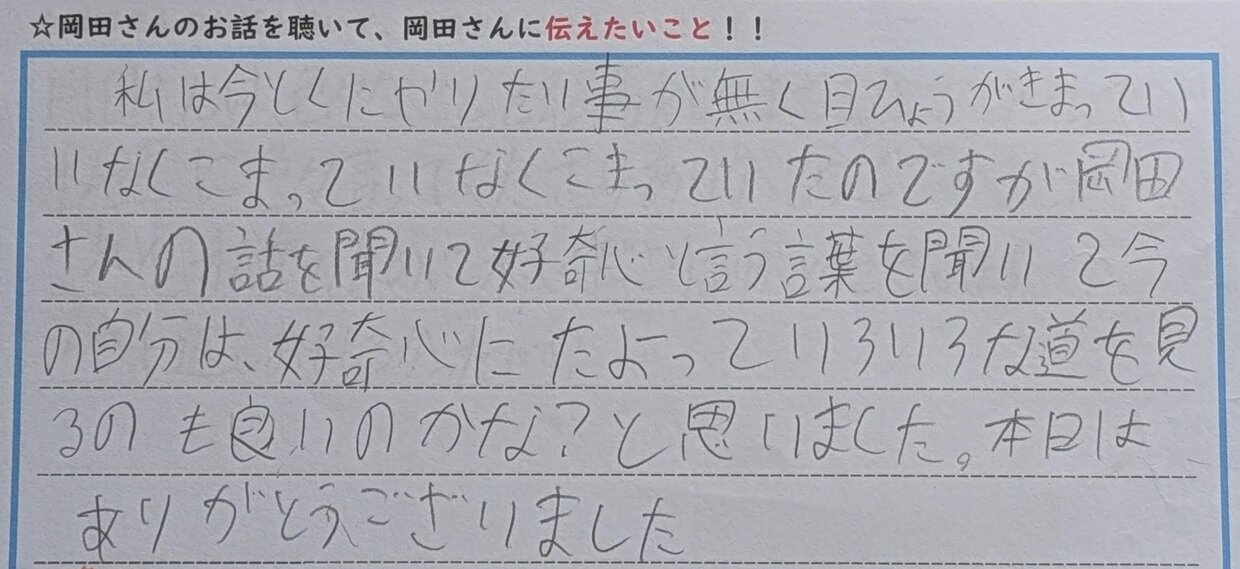 ☆岡田さんのお話を聴いて、岡田さんに伝えたいこと！！
私は今とくにやりたい事が無く目ひょうがきまってい
いなくこまっていなくこまっていたのですが岡田
さんの話を聞いて好奇心と言う言葉を聞いて今
の自分は、好奇心にたよっていろいろな道を見
るのも良いのかな？と思いました。本日は
ありがとうございました